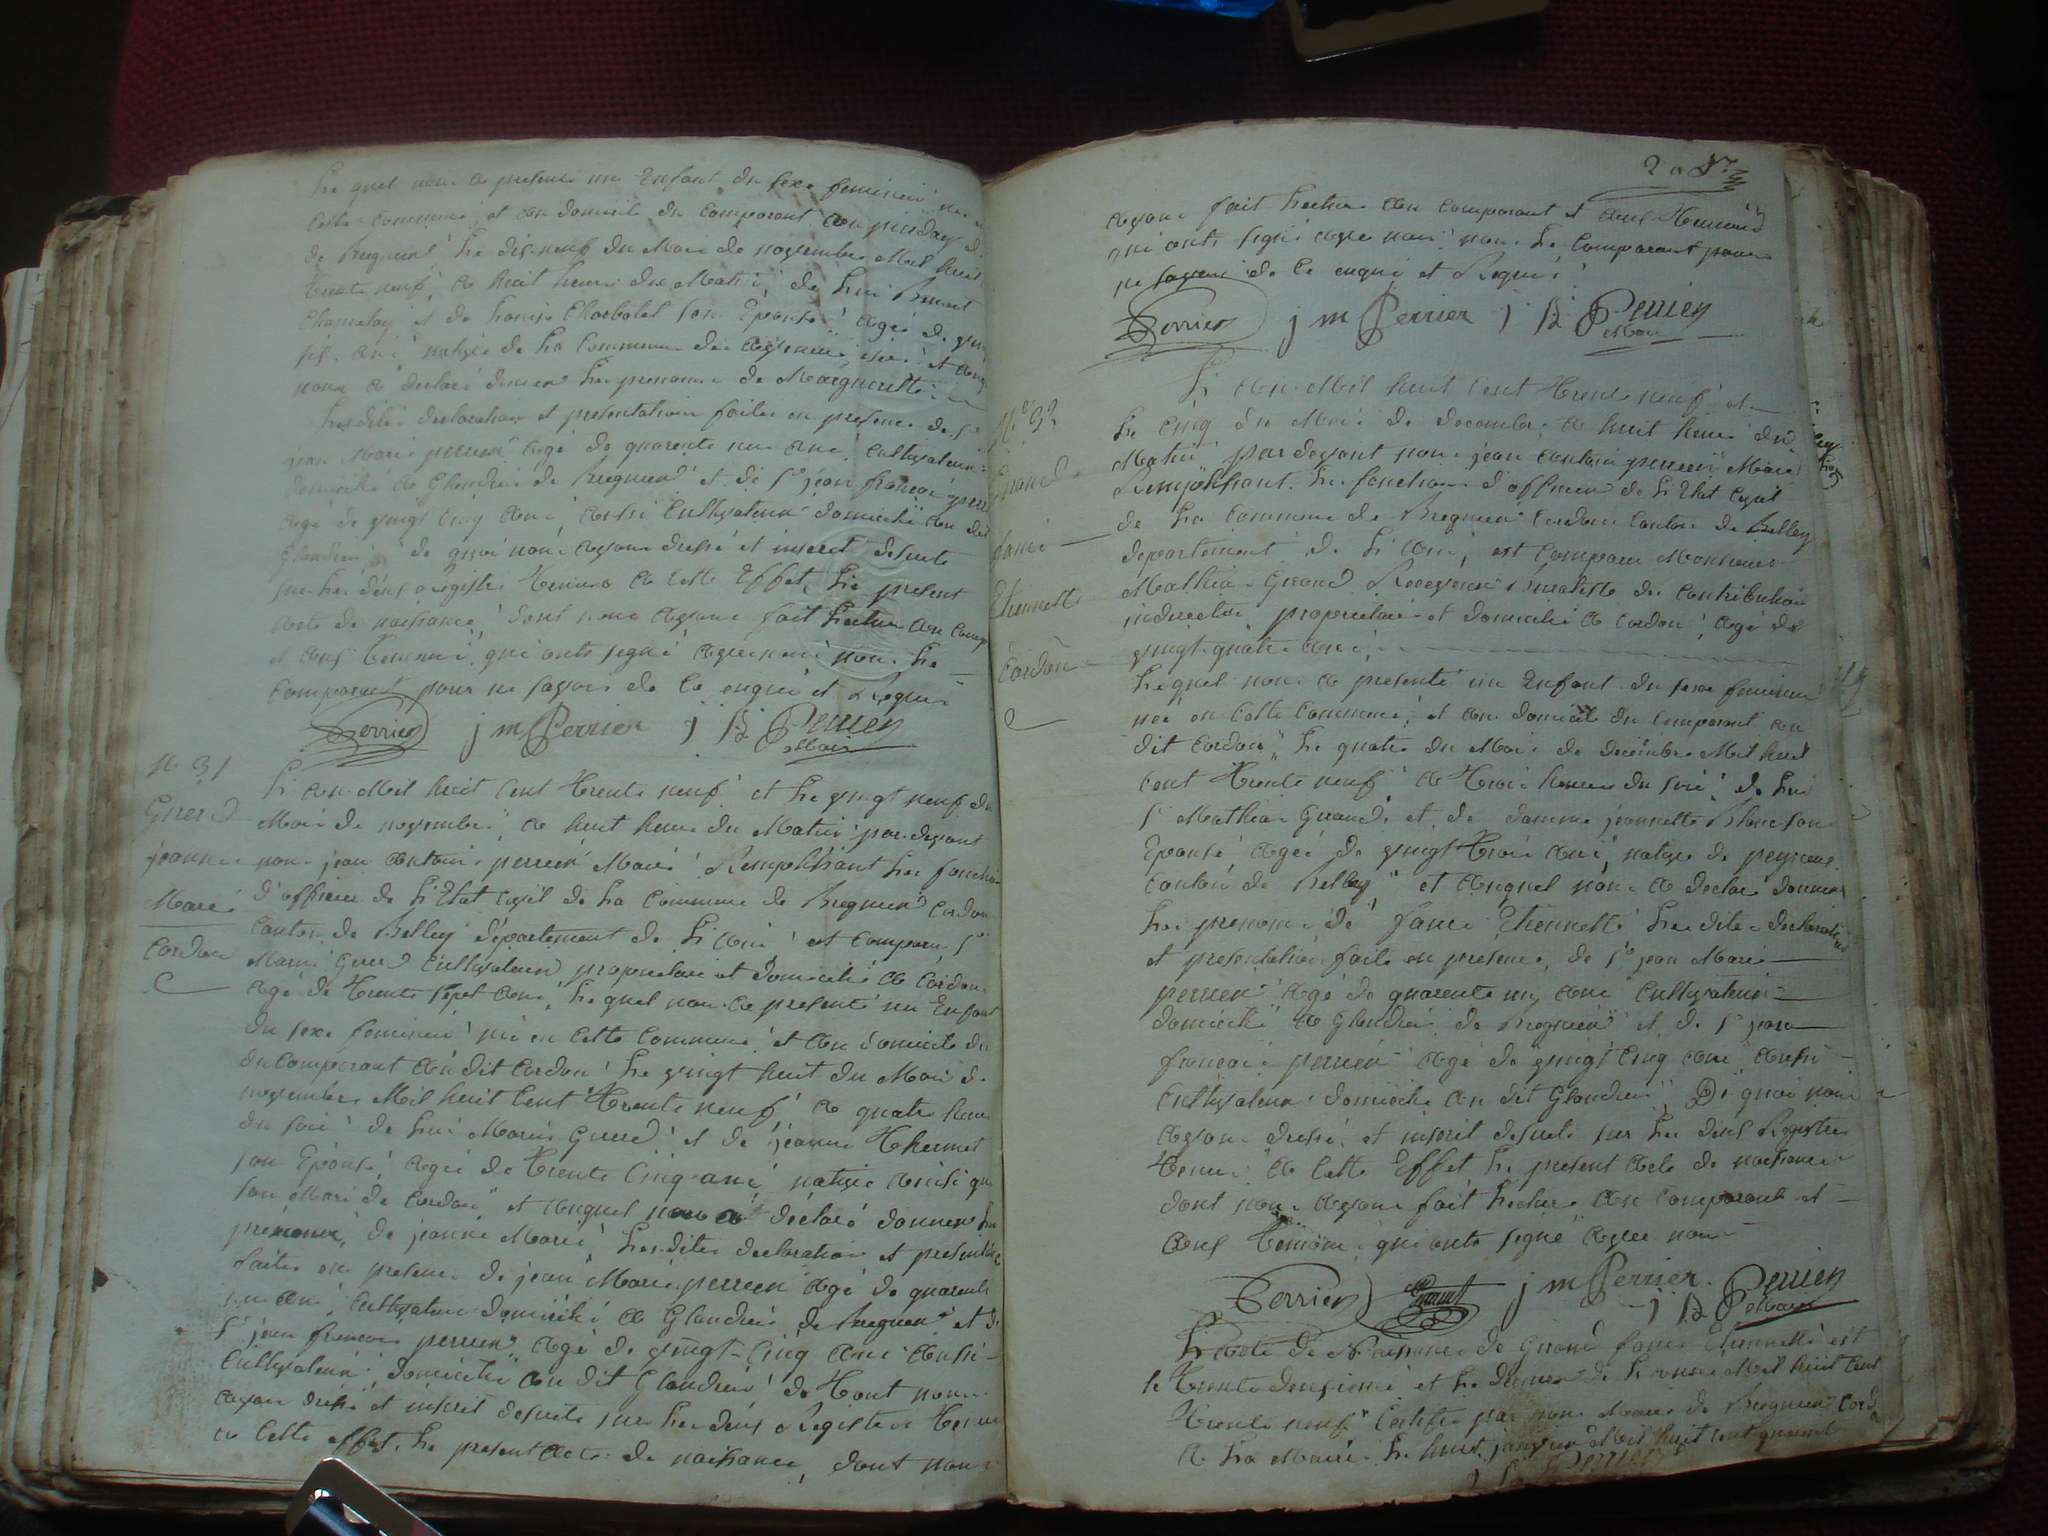 Le quel nous a presenté un Enfant du sexe feminin né en
cette commune et au domicile du comparant au
de Bregnier le dix neuf du Mois de novembre Mil huit
trente neuf, a huit heures du Matin, de lui Benoit
et de son Epouse agée de
ans native de La Commune de et
nous a declaré donner les prenoms de Margueritte
Lesdites declaration et presentation faites en presence de Sr
jean Marie perrier agé de quarente un ans, Cultivateur
domicilié a Glandieu de Bregnier et de Sr jean françois perrier
agé de vingt cinq ans, aussi Cultivateur domicilié au dit
Glandieu, de quoi nous avons dressé et inscrit desuite
sur les deux Registres tenus a cette Effet, Le present
acte de naissance, dont nous avons fait Lecture au comp
et aux temoins, qui onts signé avec nous non Le
Comparant pour ne savoir de ce enquis et Requis
Perrier j m Perrier j A Perrier
Maire
N. 31
Guerd
jeanne
Marie
Cordon
L'an Mil huit Cent trente neuf et Le vingt neuf du
Mois de novembre, a huit heures du Matin pardevant
nous jean Antoine perrier Maire Remplissant Les fonctions
d'officier de L'Etat Civil de La Commune de Bregnier Cordon
Canton de Belley département de L'ain est comparu Sr
Marie Guerd Cultivateur proprietaire et domicilié a Cordon
agé de trente sept ans, Le quel nous a presenté un Enfant
du sexe feminin né en cette Commune et au domicile du
du comparant au dit Cordon Le vingt huit du Mois de
novembre Mil huit Cent trente neuf a quatre heures
du soir de Lui Marie Guerd et de jeanne Thermet
son Epouse, agée de trente Cinq ans native ainsi que
son Mari de Cordon et auquel nous a déclaré donner les
prenoms de jeanne Marie Lesdites declaration et presentation
faites en presence de jean Marie perrier agé de quarente
un ans, Cultivateur domicilié a Glandieu de Bregnier et de
Sr jean françois perrier agé de vingt-Cinq ans aussi
Cultivateur, domicilié au dit Glandieu de tout nous
avons dressé et inscrit desuite sur les deux Registres tenus
a Cette effet, Le present acte de naissance, dont nous
avons fait Lecture au Comparant et aux temoins
qui onts signé avec nous non Le Comparant pour
ne savoir de ce enquis et Requis
Perrier j m Perrier j A Perrier
Maire
N° 32
Girand
fanie
Etiennette
Cordon
L'an Mil huit Cent trente neuf et
Le Cinq du Mois de decembre a huit heures du
Matin pardevant nous jean Antoine perrier Maire
Remplissant Les fonctions d'officier de L'Etat Civil
de La Commune de Bregnier Cordon Canton de Belley
departement de L'ain, est Comparu Monsieur
Mathieu Girand Receveur Buraliste des Contributions
indirectes proprietaire et domicilié a Cordon, agé de
vingt quatre ans,
Lequel nous a presenté un Enfant du sexe feminin
née en Cette Commune, et au domicile du comparant au
dit Cordon Le quatre du Mois de decembre Mil huit
Cent trente neuf a trois heures du soir, de Lui
Sr Mathieu Girand, et de damme jeannette Blanc son
Epouse, agée de vingt trois ans, native de peyrieux
Canton de Belley et auquel nous a declaré donner
Les prenoms de fanie Etiennette Lesdites declaration
et presentation faite en presence, de Sr jean Marie
perrier agé de quarente un ans Cultivateur
domicilié a Glandieu de Bregnier et de Sr jean
françois perrier agé de vingt Cinq ans aussi
Cultivateur domicilié au dit Glandieu, De quoi nous
avons dressé, et inscrit desuite sur Les deux Registres
tenus a Cette Effet Le present acte de naissance
dont nous avons fait Lecture au comparant et
aux temoins qui onts signé avec nous
Perrier Girand j m Perrier
j A Perrier
Maire
L'acte de Naissance de Girand fanie Etiennette est
le trente deuxieme et Le dernier de L'année Mil huit Cent
trente neuf Certifié par nous Maire de Bregnier Cordon
A La Mairie Le huit janvier Mil huit Cent quarente
j A Perrier